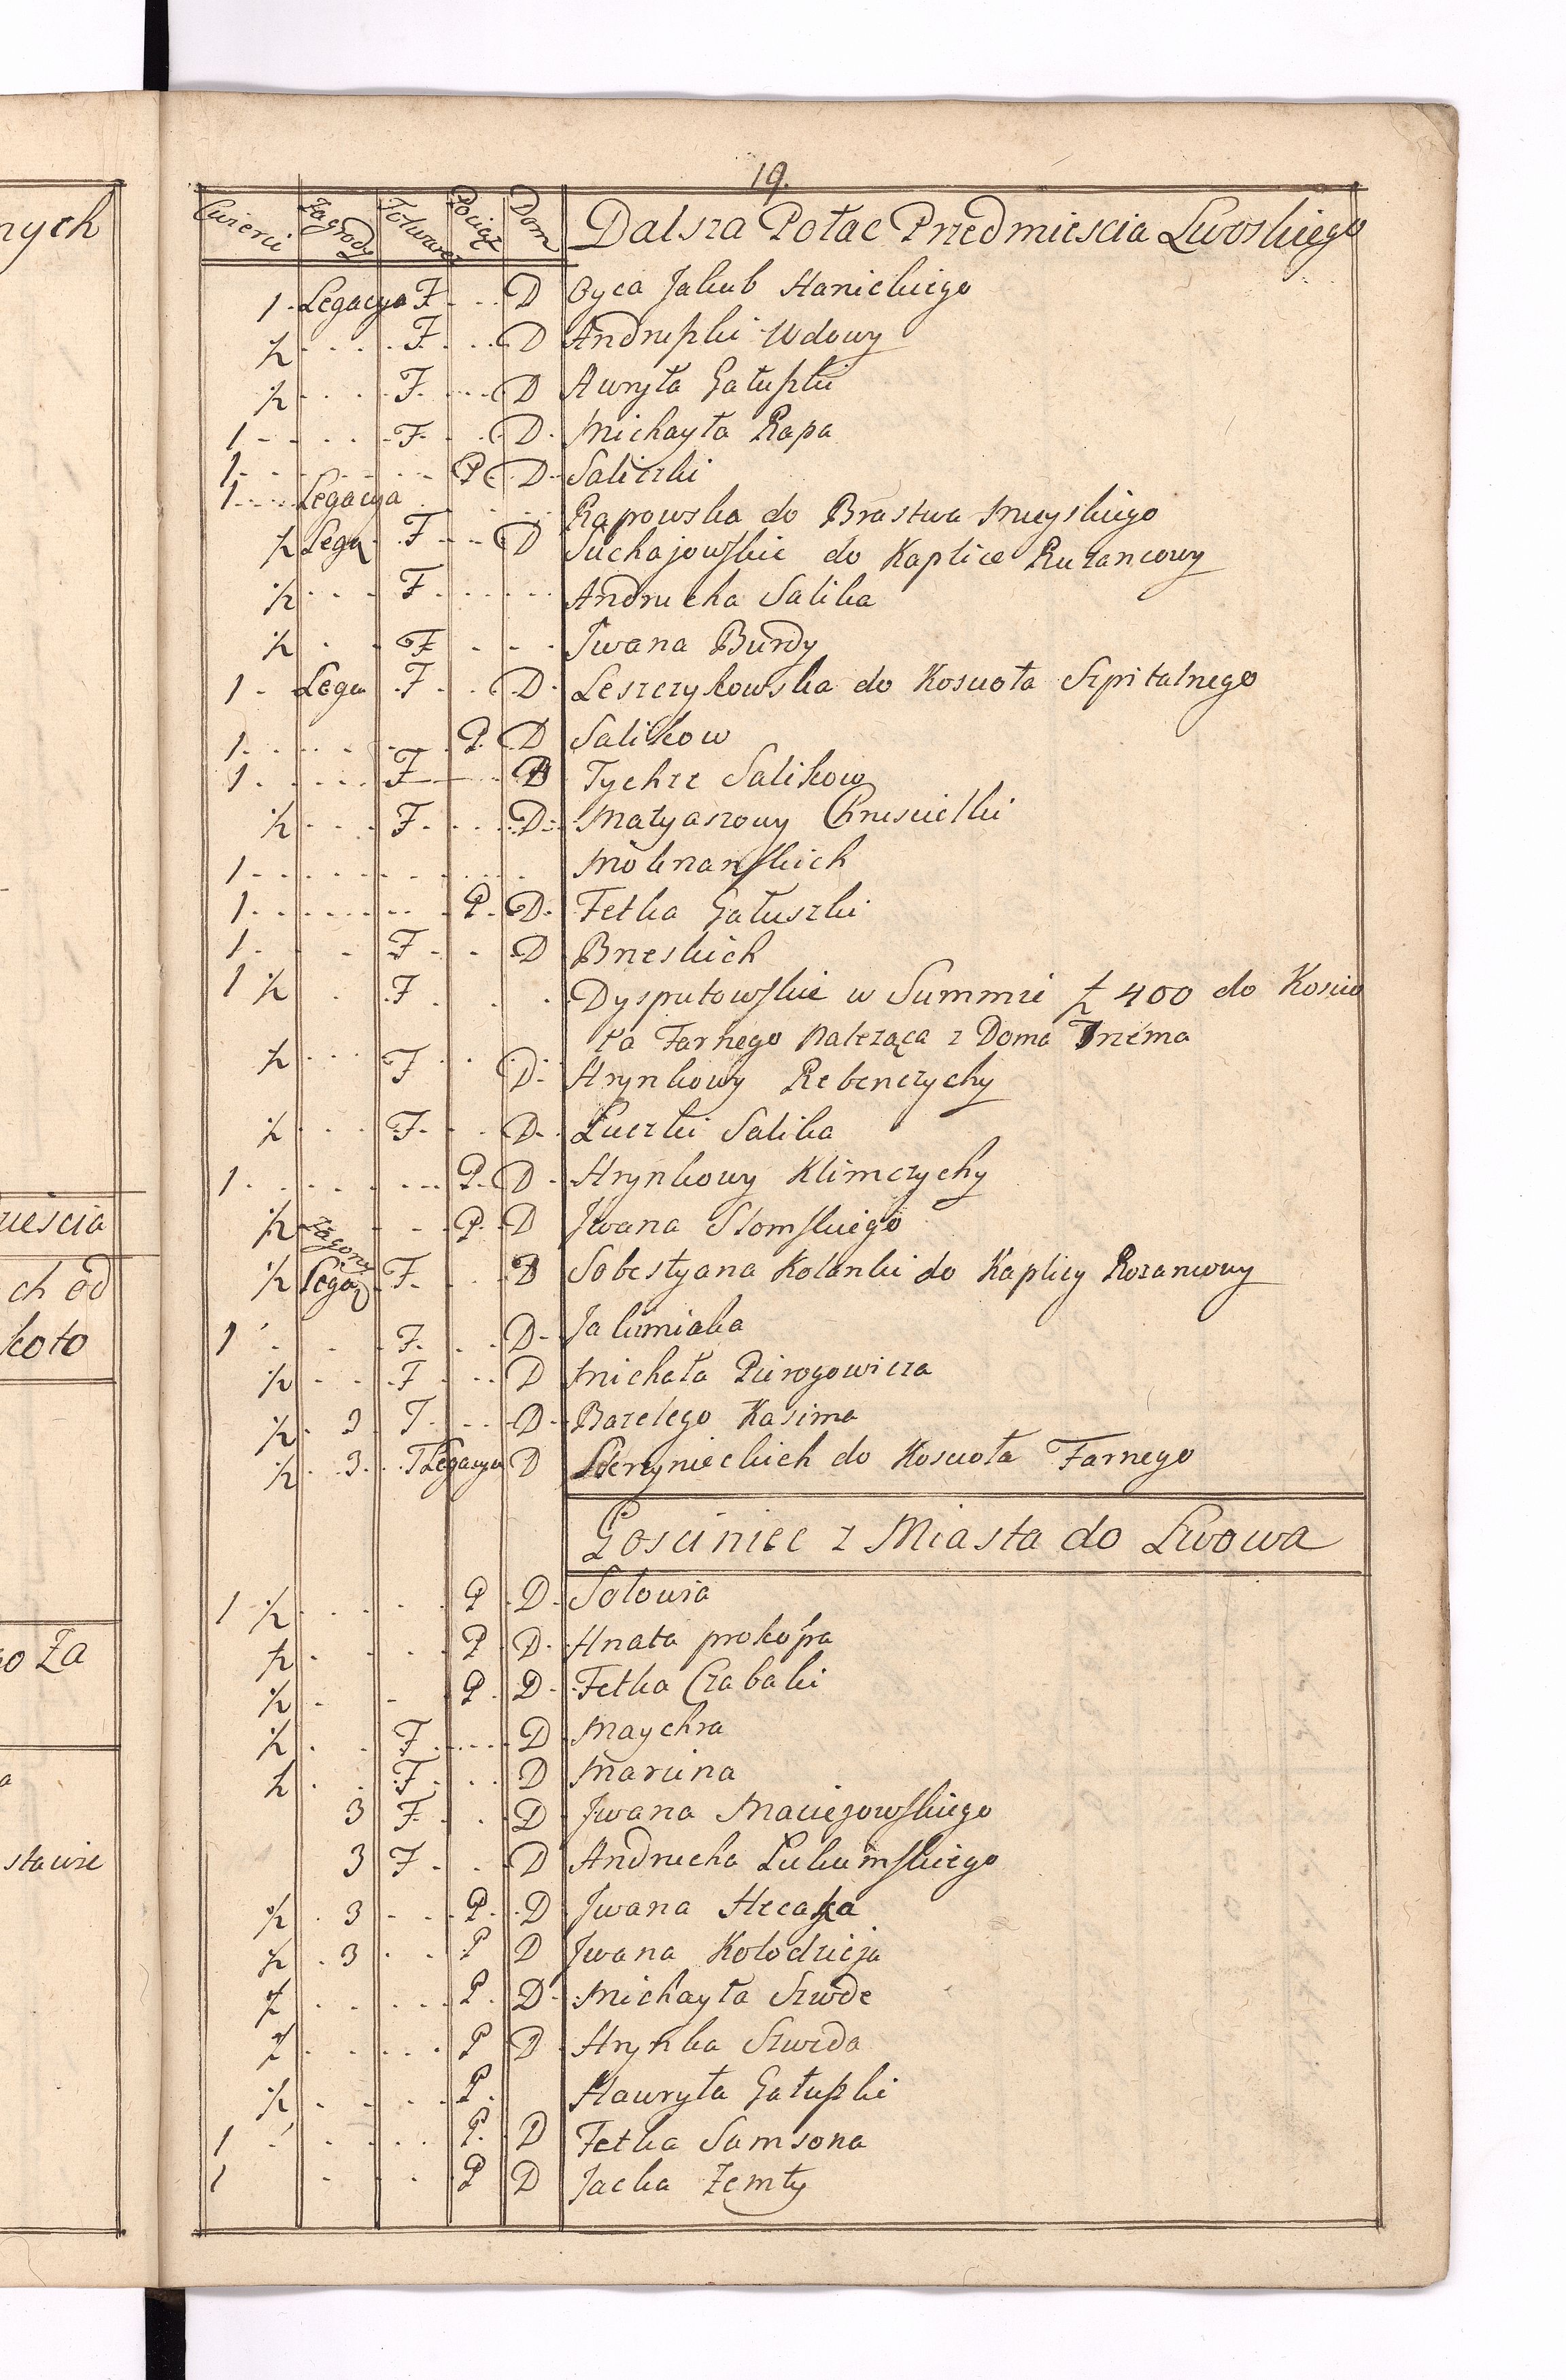 19.
Cwierci Zagrody Folwark Pociąg Dom Dalsza Połac Przedmiescia Lwoskiego
1 Legacya F D Oyca Jakub Hanickiego
½ F D Andruszki Wdowy
½ F D Awryła Gałuszki
1 F D Michayła Rapa
1 P D Saliczki
1 Legacya Rapowska do Brastwa Mieyskiego
½ Lega F D Suchajowskie do Kaplice Ruzancowy
½ F Andrucha Salika
½ F Jwana Burdy
1 Lega F D Leszczykowska do Koscioła Szpitalnego
1 P D Salikow
1 F D Tychze Salikow
½ F D Matyaszowy Chruscielki
1 Molinarskich
1 P D Fetka Gałuszki
1 F D Breskich
1 ½ F Dysputowskie w Summie 400 do Koscio
ła Farnego naleząca z Doma Trzema
½ F D Hrynkowy Rebenczychy
½ F D Łuczki Salika
1 P D Hrynkowy Klimczychy
½ Zagony P D Jwana Słomskiego
½ Lega F D Sobestyana Kolanki do Kaplicy Rozancowy
1 F D Jakimiaka
½ F D Michała Pirogowicza
½ 3 F D Bazelego Kasima
½ 3 F Legacya D do Koscioła Farnego
Gosciniec z Miasta do Lwowa
1 ½ P D Sołowia
½ P D Hnata prokopa
½ P D Fetka Czabaki
½ F D Maychra
½ F D Marcina
3 F D Jwana Maciejowskiego
3 F D Andrucha Lukumskiego
½ 3 P D Jwana
½ 3 P D Jwana Kołodzieja
½ P D Michayła Szwde
½ P D Hrynka Szweda
½ P Hawryła Gałuszki
1 P D Fetka Samsona
1 P D Jacka Zemły
nych
iescia
ch od
koło
o Za
a
stawie